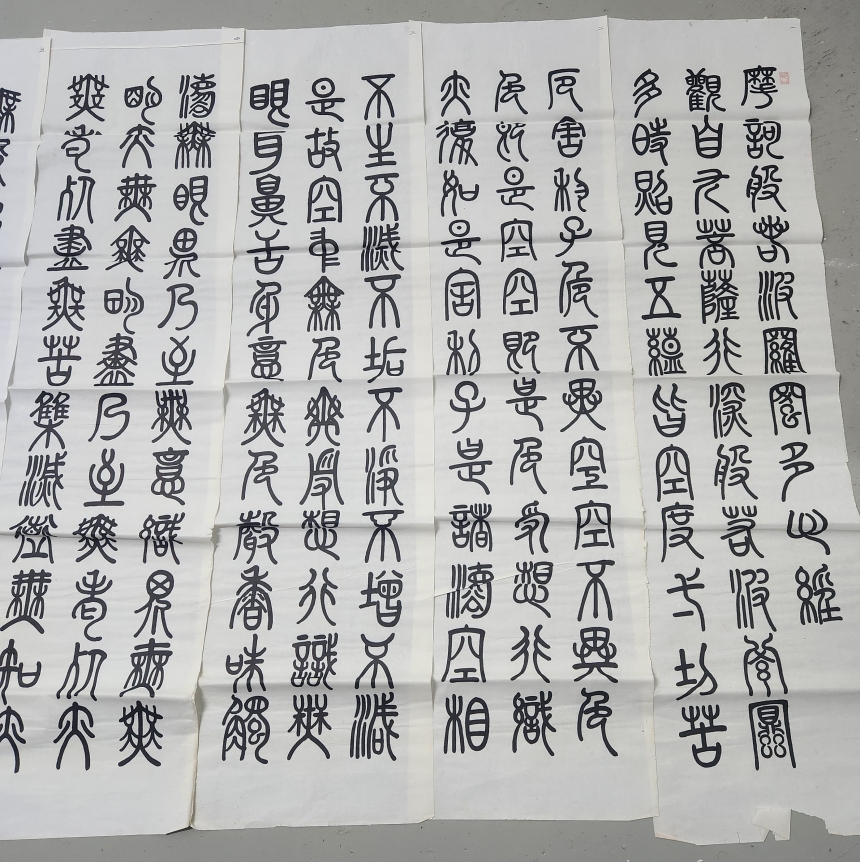 摩訶般若波羅蜜多心經
觀自在菩薩行深般若波羅蜜
多時照見五蘊皆空度一切苦
厄舍利子色不異空空不異色
色即是空空即是色受想行識
亦復如是舍利子是諸法空相
不生不滅不垢不淨不增不減
是故空中無色無受想行識無
眼耳鼻舌身意無色聲香味觸
法無眼界乃至無意識界無無
明亦無無明盡乃至無老死亦
無老死盡無苦集滅道無智亦